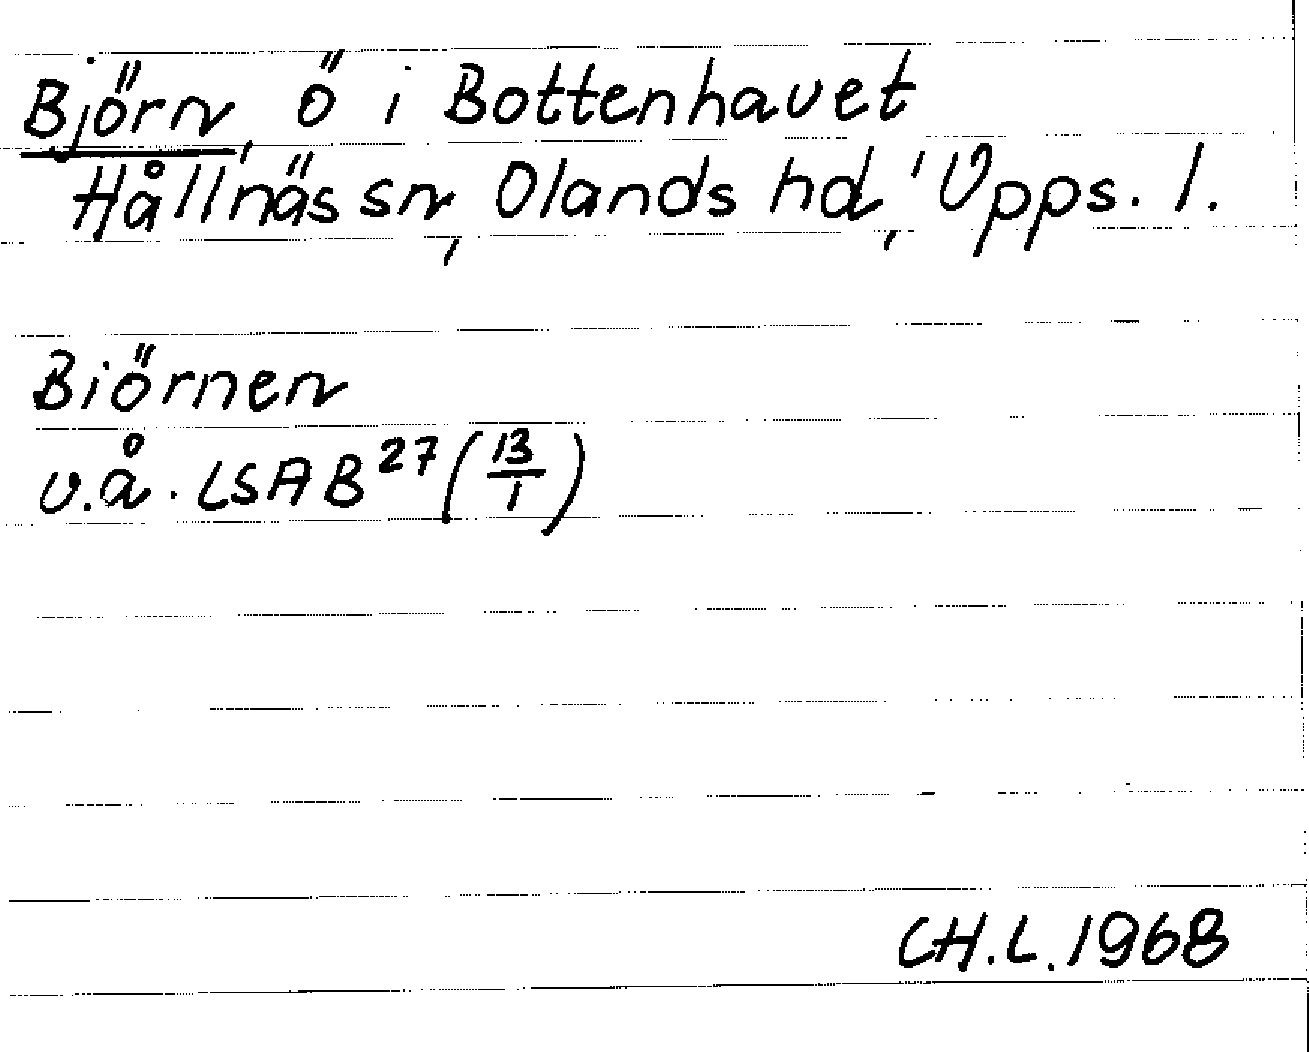 Björn, ö i Bottenhavet
Hållnäs sn, Olands hd, Upps. l.
Biörnen
u.å. LSA B²⁷ (13/1)
CH.L. 1968